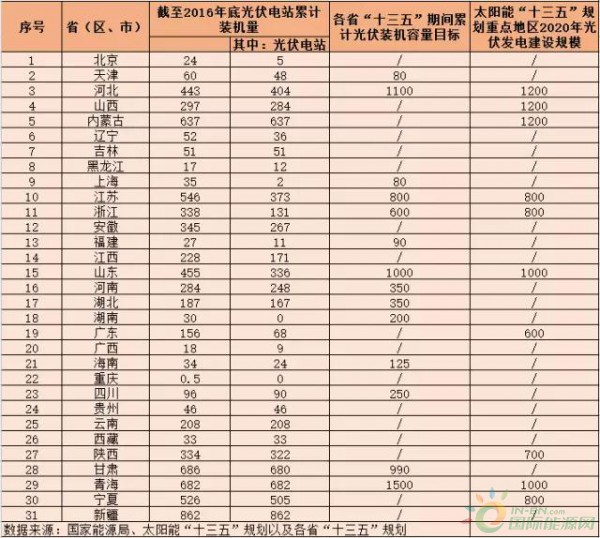 序号 省（区、市） 截至2016年底光伏电站累计装机量 各省“十三五”期间累计光伏装机容量目标 太阳能“十三五”规划重点地区2020年光伏发电建设规模
其中：光伏电站
1 北京 24 5 / /
2 天津 60 48 80 /
3 河北 443 404 1100 1200
4 山西 297 284 / 1200
5 内蒙古 637 637 / 1200
6 辽宁 52 36 / /
7 吉林 51 51 / /
8 黑龙江 17 12 / /
9 上海 35 2 80 /
10 江苏 546 373 800 800
11 浙江 338 131 600 800
12 安徽 345 267 / /
13 福建 27 11 90 /
14 江西 228 171 / /
15 山东 455 336 1000 1000
16 河南 284 248 350 /
17 湖北 187 167 350 /
18 湖南 30 0 200 /
19 广东 156 68 / 600
20 广西 18 9 / /
21 海南 34 24 125 /
22 重庆 0.5 0 / /
23 四川 96 90 250 /
24 贵州 46 46 / /
25 云南 208 208 / /
26 西藏 33 33 / /
27 陕西 334 322 / 700
28 甘肃 686 680 990 /
29 青海 682 682 1500 1000
30 宁夏 526 505 / 800
31 新疆 862 862 / /
数据来源：国家能源局、太阳能“十三五”规划以及各省“十三五”规划
IN-EN.com
国际能源网